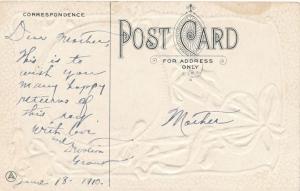 CORRESPONDENCE
Dear Mother,
This is to
wish you
many happy
returns of
this day.
With love
Grant
June 13 - 1910.
POST CARD
FOR ADDRESS
ONLY
Mother